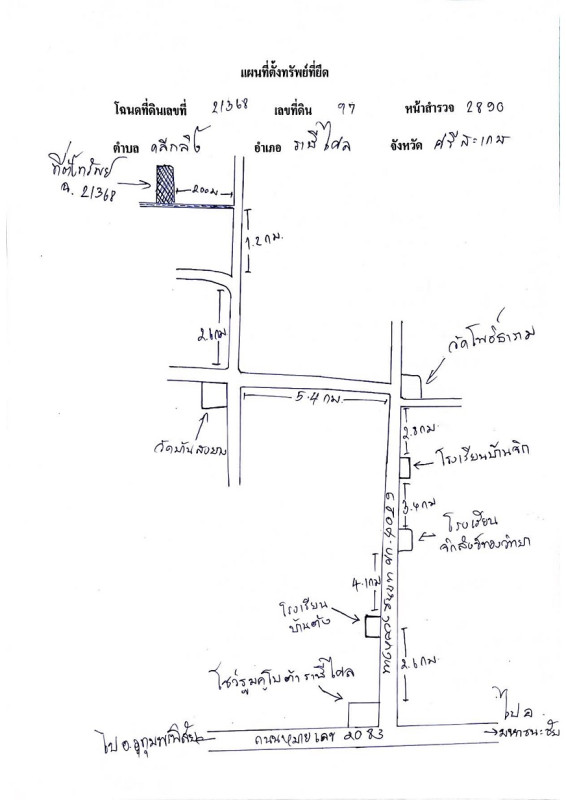 แผนที่ตั้งทรัพย์ที่ยึด
โฉนดที่ดินเลขที่ 21368 เลขที่ดิน 97 หน้าสำรวจ 2890
ตำบล อำเภอ ราษีไศล จังหวัด ศรีสะเกษ
ที่ตั้งทรัพย์
ฉ. 21368
200 ม
1.2 กม.
2.6 กม
วัดโพธิ์ธาราม
5.4 กม.
2.8 กม.
วัดบ้าน
โรงเรียนบ้านจิก
3.4 กม
โรงเรียน
จิกสังข์ทองวิทยา
4.1 กม
โรงเรียน
บ้าน
2.6 กม.
โชว์รูมคูโบต้า ราษีไศล
ไป อ.อุทุมพรพิสัย
ถนนหมายเลข 2083
ไป อ.
มหาชนะชัย